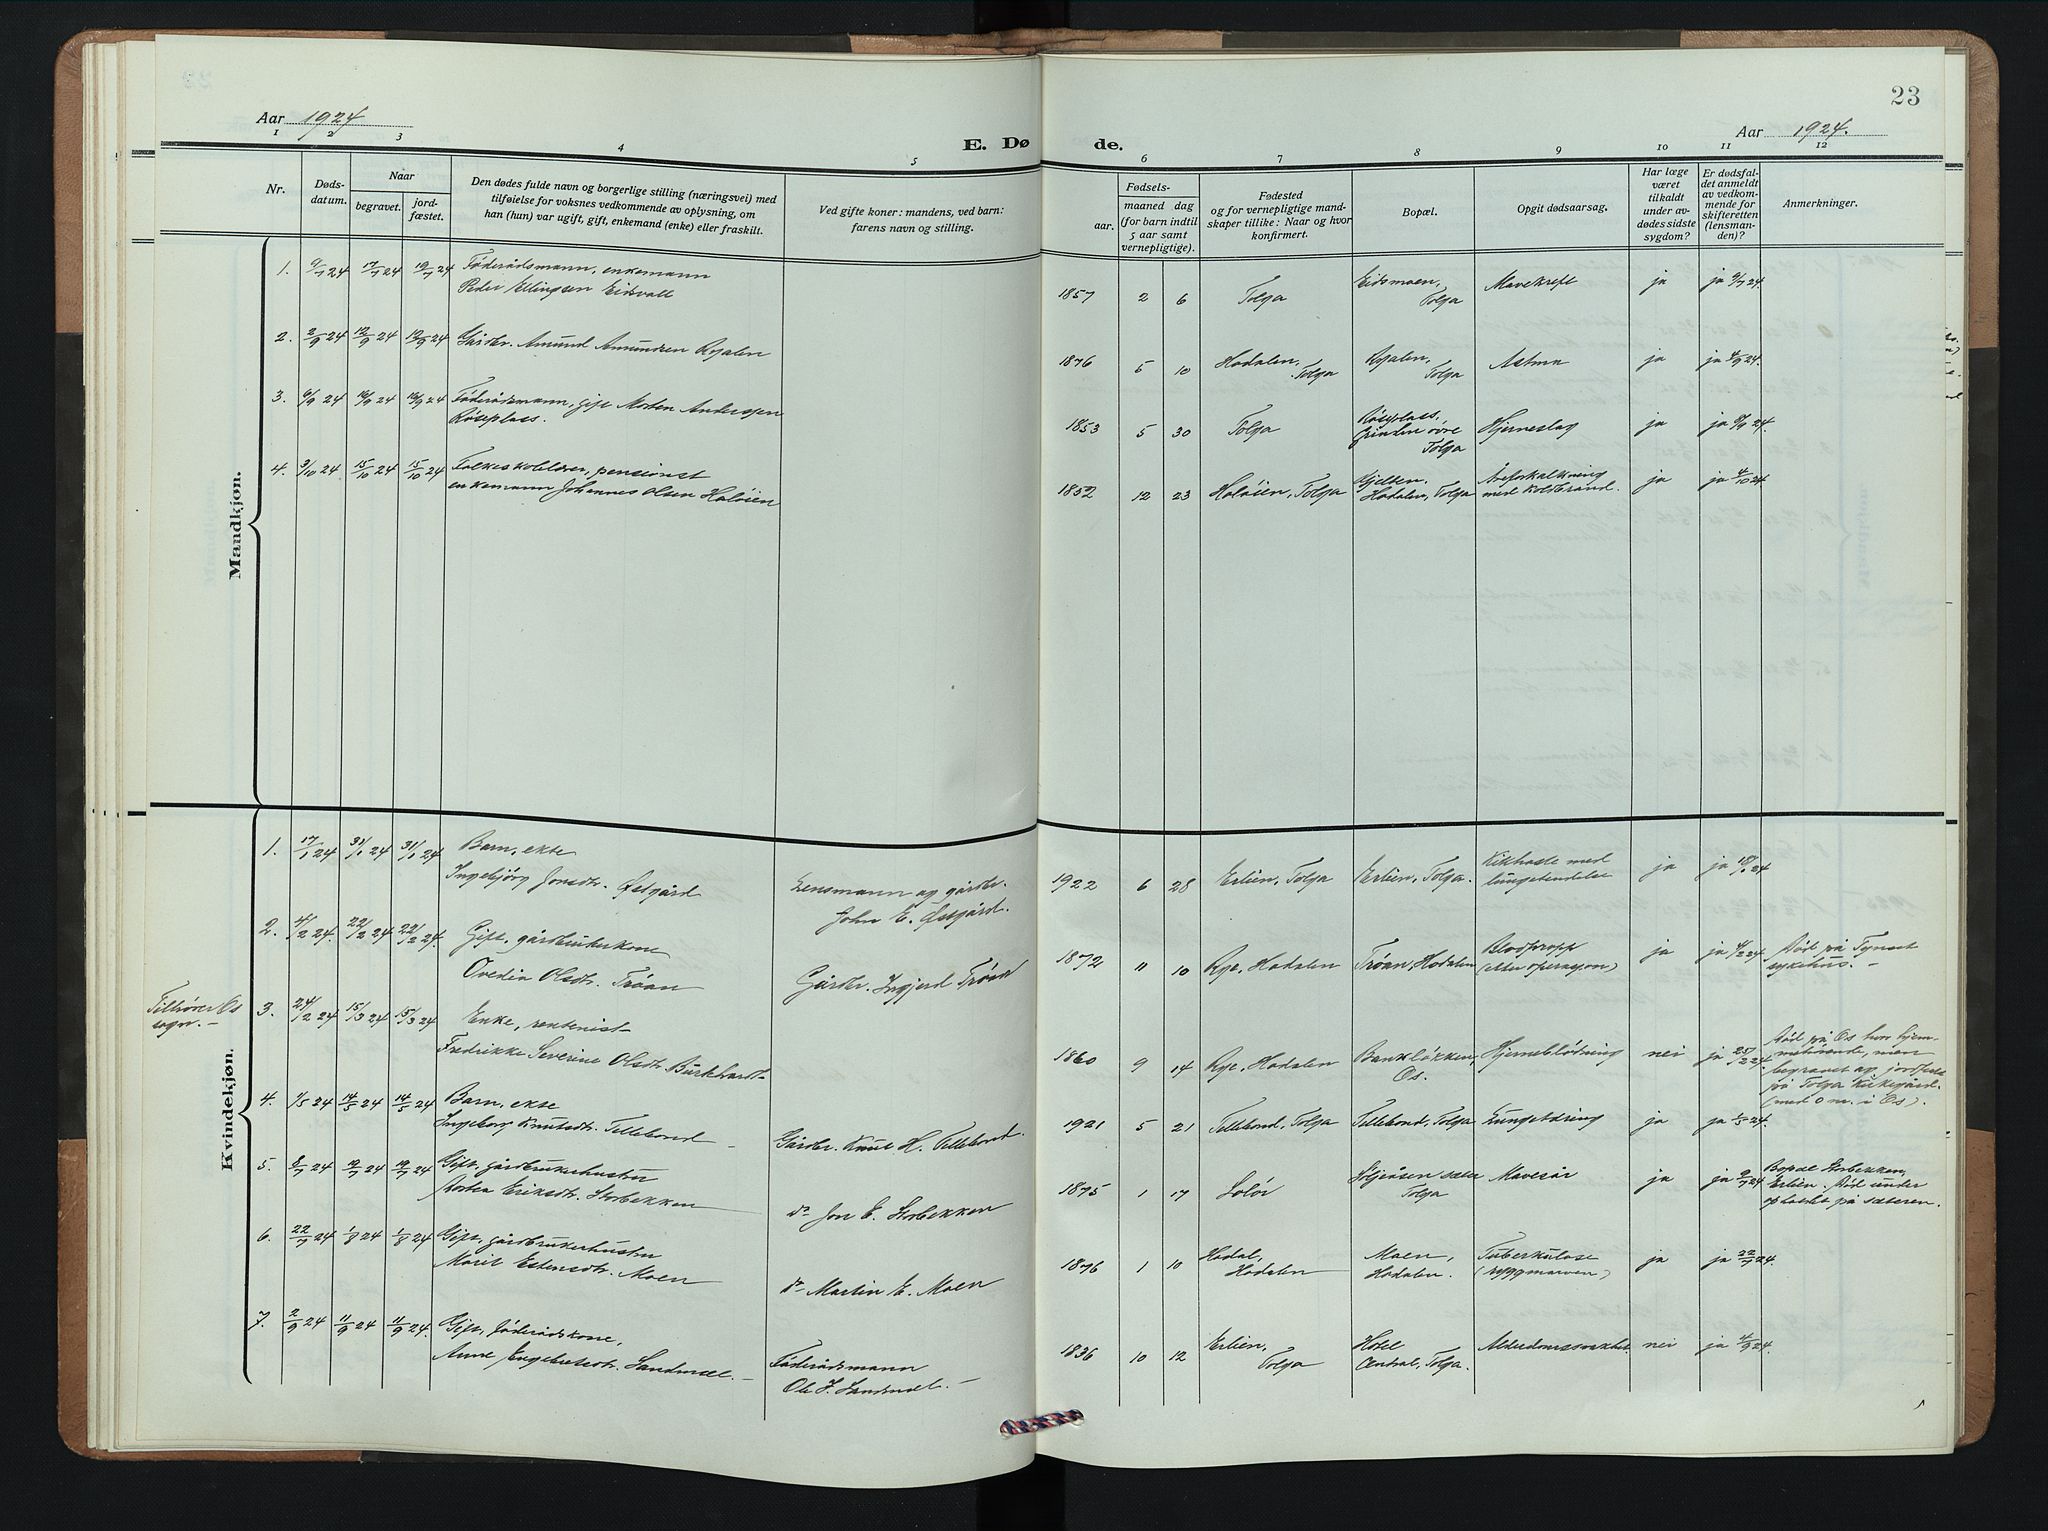 23
Aar 1924
E. Dø
de.
Aar 1924.
1 2 3 4 5 6 7 8 9 10 11 12
Nr.
Døds-
datum.
Naar
begravet.
jord-
fæstet.
Den dødes fulde navn og borgerlige stilling (næringsvei) med
tilføielse for voksnes vedkommende av oplysning, om
han (hun) var ugift, gift, enkemand (enke) eller fraskilt.
Ved gifte koner: mandens, ved barn:
farens navn og stilling.
Fødsels-
aar.
maaned dag
(for barn indtil
5 aar samt
vernepligtige).
Fødested
og for vernepligtige mand-
skaper tillike: Naar og hvor
konfirmert.
Bopæl.
Opgit dødsaarsag.
Har læge
været
tilkaldt
under av-
dødes sidste
sygdom?
Er dødsfal-
det anmeldt
av vedkom-
mende for
skifteretten
(lensman-
den)?
Anmerkninger.
Mandkjøn.
1. 9/7 24 17/7 24 19/7 24 Føderådsmann, enkemann
Peder Ellingsen Eidsvoll
1857 2 6 Tolga Eidsmoen, Tolga Mavekreft ja ja 9/7 24.
2. 2/9 24 12/9 24 12/9 24 Gårdbr. Amund Amundsen Ryalen
1876 5 10 Hodalen, Tolga Ryalen, Tolga Astma ja ja 4/9 24.
3. 6/9 24 16/9 24 16/9 24 Føderådsmann, gift Morten Anderssen
Røseplass.
1853 5 30 Tolga Røseplass, øvre Tolga Hjerneslag ja ja 8/9 24.
4. 3/10 24 15/10 24 15/10 24 Folkeskolelærer, pensionist
enkemann Johannes Olsen Holøien
1852 12 23 Holøien, Tolga Kjelten, Hodalen, Tolga Åreforkalkning
med koldbrand. ja ja 4/10 24.
Kvindekjøn.
1. 17/1 24 31/1 24 31/1 24 Barn, ekte
Ingebjørg Jonsdtr. Østgård
Lensmann og gårdbr.
John E. Østgård.
1922 6 28 Erlien, Tolga Erlien, Tolga. Kikhoste med
lungebetendelse ja ja 18/1 24
2. 4/2 24. 22/2 24 22/2 24. Gift, gårdbrukerkone
Ovedia Olsdtr. Trøan
Gårdbr. Ingjerd Trøan
1872 11 10 Rye, Hodalen Trøan, Hodalen Blodpropp
(etter operasjon) ja ja 4/2 24 død på Tynset
sykehus. -
Tilhører Os
sogn. -
3. 24/2 24 15/3 24 15/3 24 Enke, rentenist
Fredrikke Severine Olsdtr. Burkhardt
1860 9 14 Rye, Hodalen Bankløkken,
Os. Hjerneblødning nei ja 25/2 24. død på Os hvor hjem-
mehørende, men
begravet og jordfestet
på Tolga kirkegård.
(med 0 nr. i Os).
4. 1/5 24 14/5 24 14/5 24 Barn, ekte
Ingeborg Knutsdtr. Tellebond
Gårdbr. Knut H. Tellebond.
1921 5 21 Tellebond, Tolga Tellebond, Tolga Lungetæring ja ja 1/5 24.
5. 8/7 24 19/7 24 19/7 24 Gift, gårdbrukerhustru
Eriksdtr. Storbekken
do Jon E. Storbekken
1875 1 17 Solør sæter
Tolga Mavesår ja ja 9/7 24 Bopæl Storbekken,
Erlien. død under
opholdet på sæteren.
6. 22/7 24 1/8 24 1/8 24 Gift, gårdbrukerhustru
Marit Estensdtr. Moen
do Martin E. Moen
1876 1 10 Hodal,
Hodalen Moen,
Hodalen. Tuberkulose
(ryggmarven) ja ja 22/7 24.
7. 2/9 24 11/9 24 11/9 24. Gift, føderådskone,
Anne Engebretsdtr. Sandmæl. -
Føderådsmann
Ole J. Sandmæl. -
1836 10 12 Erlien,
Tolga Hotel
Central, Tolga. Alderdomssvakhet. nei ja 4/9 24.